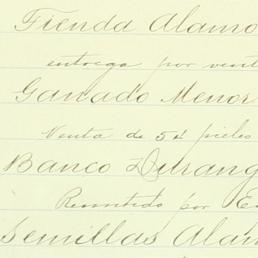 Tienda Alamo
entrega por vent
Ganado Menor
Venta de 54 pieles
Banco Durang
Remitido por E
Semillas Alam